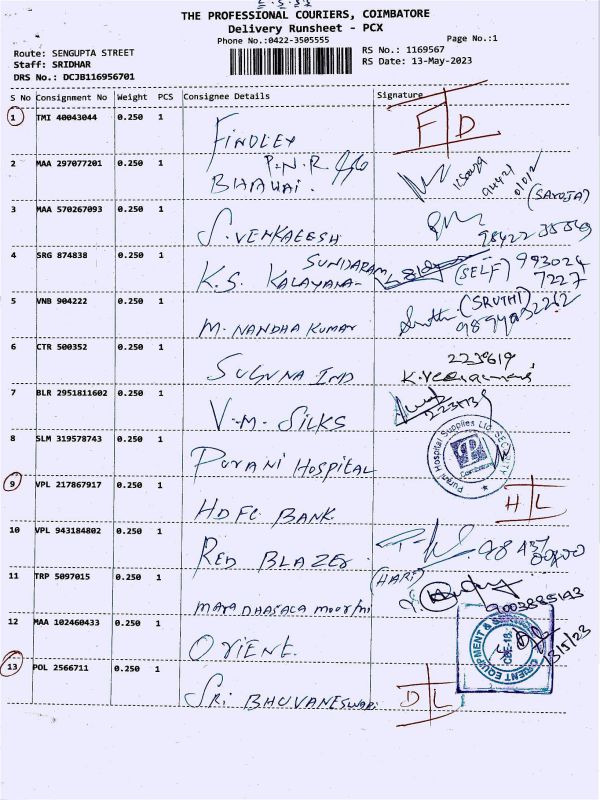 THE PROFESSIONAL COURIERS, COIMBATORE
Delivery Runsheet - PCX
Phone No.:0422-3505555
Page No.:1
Route: SENGUPTA STREET
RS No.: 1169567
Staff: SRIDHAR
RS Date: 13-May-2023
DRS No.: DCJB116956701
S No Consignment No Weight PCS Consignee Details Signature
1 TMI 40043044 0.250 1 FINDLEY F D
2 MAA 297077201 0.250 1 P.N.R BHAWAI. (SAROJA)
3 MAA 570267093 0.250 1 S. VENKATESH
4 SRG 874838 0.250 1 K.S. KALAYANA- SUNDARAM (SELF) 993024 7227
5 VNB 904222 0.250 1 M. NANDHA KUMAR (SRUTHI)
6 CTR 500352 0.250 1 SUGUNA IND 223619
7 BLR 2951811602 0.250 1 V.M. SILKS
8 SLM 319578743 0.250 1 PURANI HOSPITAL Purani Hospital Supplies Ltd SECURITY Coimbatore
9 VPL 217867917 0.250 1 HDFC BANK H L
10 VPL 943184802 0.250 1 RED BLAZE
11 TRP 5097015 0.250 1 (HARI) 9003885193
12 MAA 102460433 0.250 1 ORIENT. ORIENT EQUIPMENT & CBE-18. 13/5/23
13 POL 2566711 0.250 1 SRI BHUVANESWARI D L